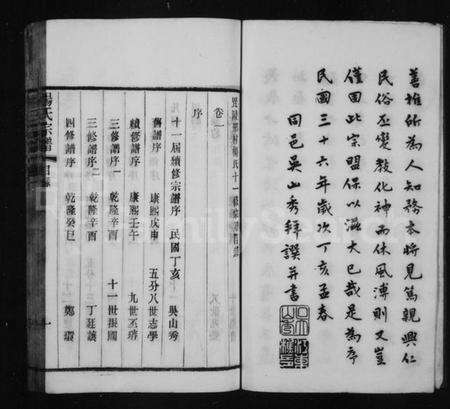 善推所為人知務本將見篤親興仁
民俗丕變教化神而休風溥則又豈
僅固此宗盟保以滋大已哉是為序
民國三十六年歲次丁亥孟春
同邑吳山秀拜譔并書
毘陵
十一
卷首
序
十一屆續修宗譜序 民國丁亥 吳山秀
舊譜序 康熙戊申 五分八世志學
續修譜序 康熙壬午 九世丕璿
三修譜序一 乾隆辛酉 十一世振國
三修譜序二 乾隆辛酉 丁廷讓
四修譜序 乾隆癸巳 鄭環
楊氏宗譜 目錄